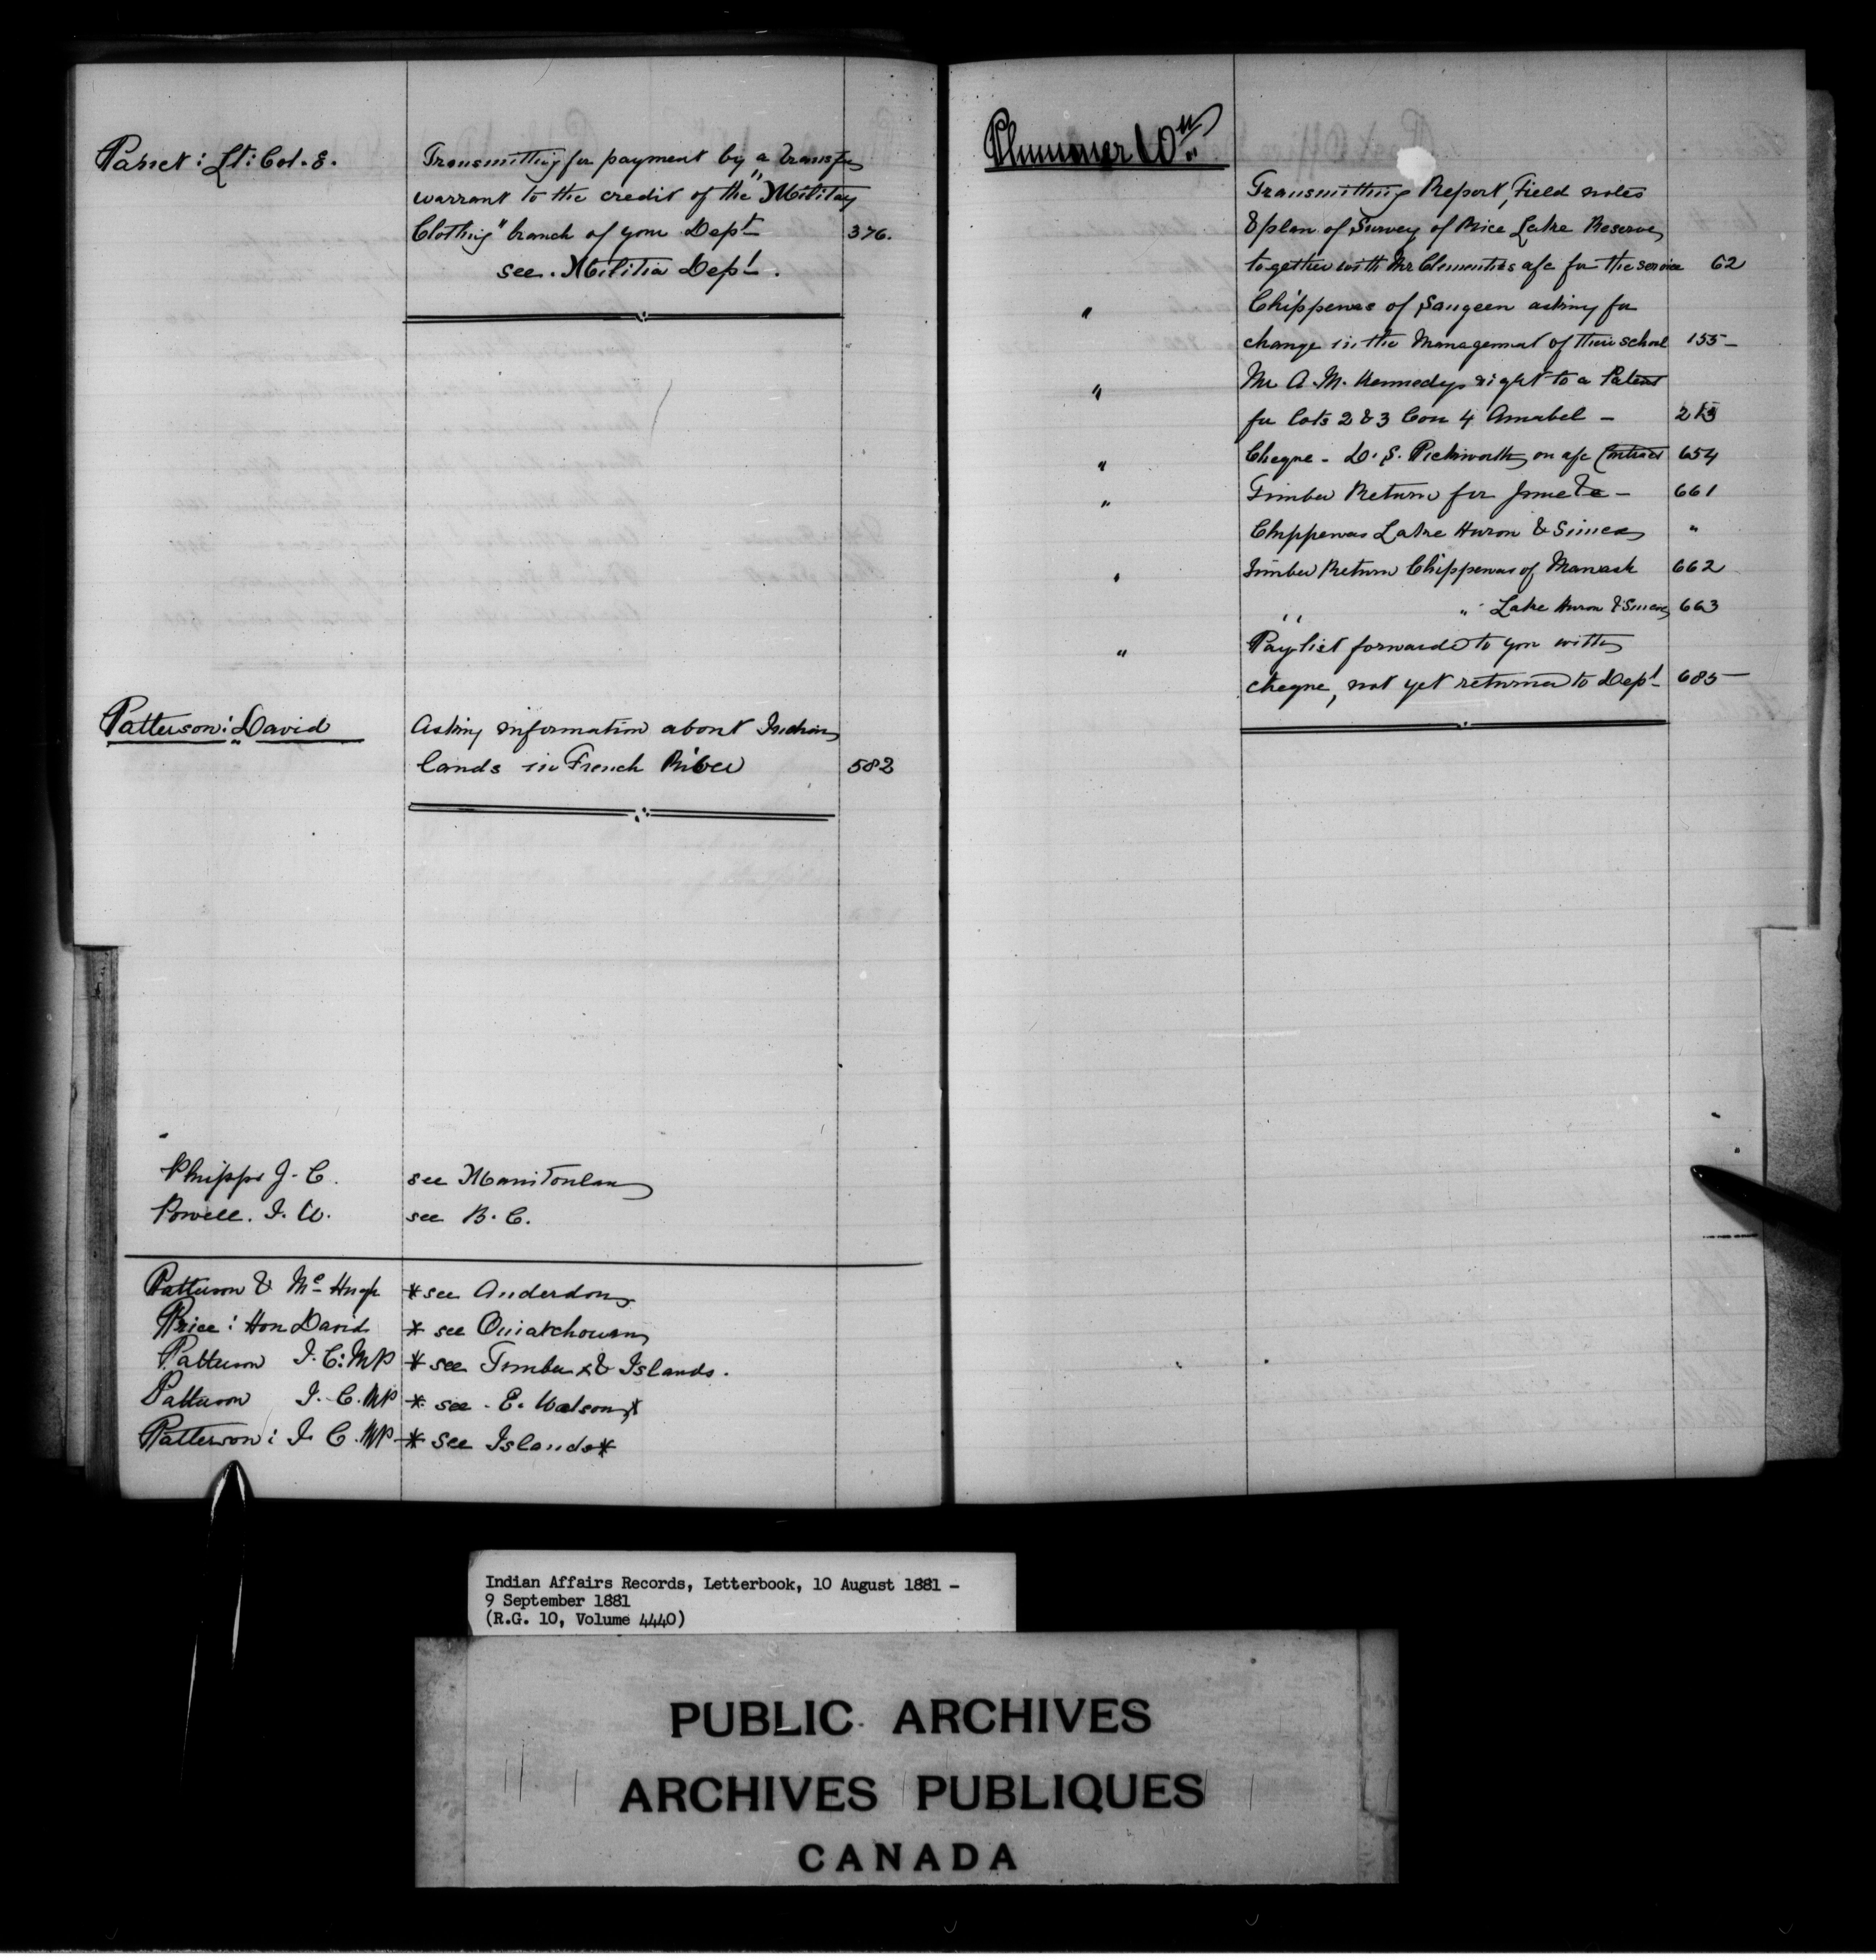 Panet : Lt: Col. E. Transmitting for payment by a transfer
warrant to the credit of the "Military
Clothing" branch of your Dept 376.
see. Militia Dept.
Patterson: David Asking information about Indian
lands in French River 582
Phipps J. C. see Manitoulin
Powell. I. W. see B. C.
Patterson & Mc Hugh * see Anderdon
Price : Hon David * see Ouiatchouan
Patterson J. C: MP * see Timber & Islands.
Patterson J. C. MP * see . E. Watson *
Patterson : J. C. MP * see Islands *
Plummer Wm
Transmitting Report, Field notes
& plan of Survey of Rice Lake Reserve,
together with Mr Clementi's a/c for the service 62
" Chippewas of Saugeen asking for
change in the management of their school 155
" Mr A. M. Kennedys right to a Patent
for lots 2 & 3 Con 4 Amabel
" Cheque - D. S. Pickworth on a/c Contract 654
" Timber Return for June &c 661
Chippewas Lake Huron & Simcoe "
" Timber Return Chippewas of Nawash 662
" " Lake Huron & Simcoe 663
" Paylist forwarded to you with
cheque, not yet returned to Dept 685
Indian Affairs Records, Letterbook, 10 August 1881 -
9 September 1881
(R.G. 10, Volume 4440)
PUBLIC ARCHIVES
ARCHIVES PUBLIQUES
CANADA